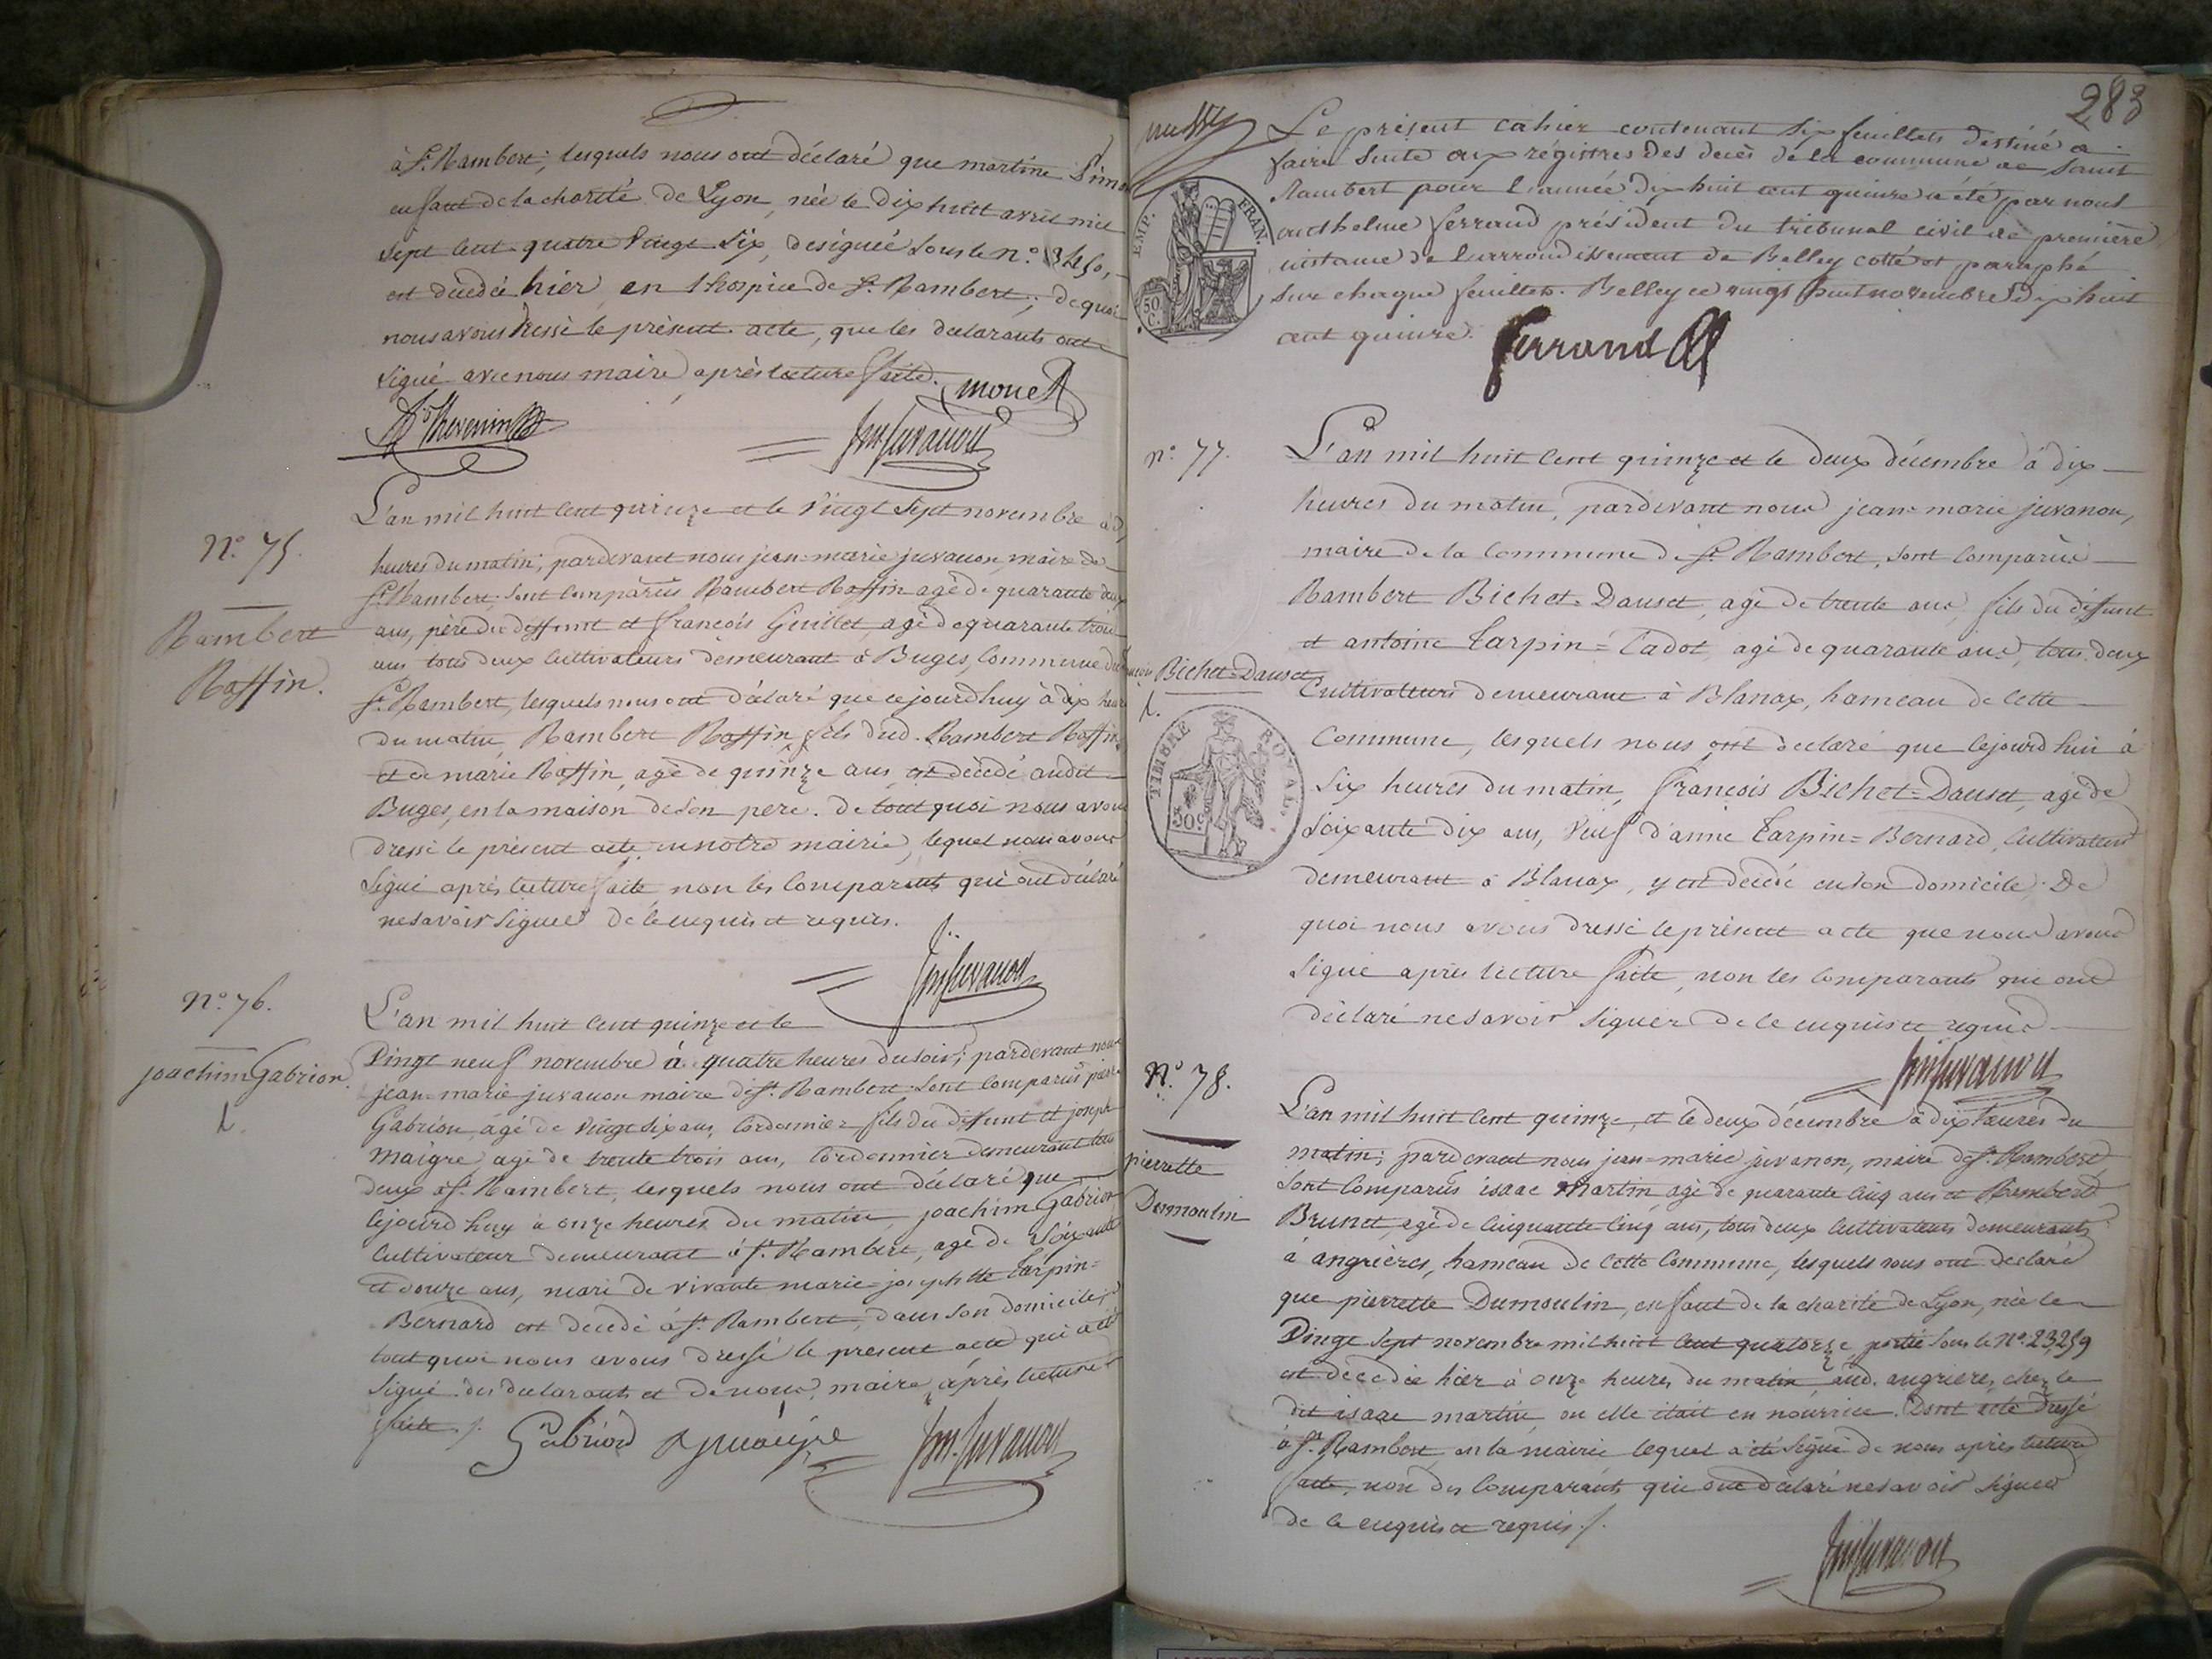 à St. Rambert; lesquels nous ont déclaré que martine Simo
enfant de la charité de Lyon, née le dix huit avril mil
sept cent quatre vingt six, designée sous le n.o
est décédée hier en l'hospice de St. Rambert; de quoi
nous avons dressé le présent acte, que les déclarants ont
signé avec nous maire, après lecture faite. monet
Thevenin
jm juvanon
N.o 75.
Rambert
Roffin.
L'an mil huit cent quinze et le vingt sept novembre à
heures du matin; pardevant nous jean-marie juvanon, maire de
St. Rambert; sont comparus Rambert Roffin agé de quarante deux
ans, père du deffunt et francois Guillet, agé de quarante trois
ans tous deux cultivateurs demeurant à Buges, Commune de
St. Rambert, lesquels nous ont déclaré que cejourdhuy à dix heures
du matin, Rambert Roffin, fils dud. Rambert Roffin
et de marie Roffin, agé de quinze ans, est décédé audit
Buges, en la maison de son père. de tout quoi nous avons
dressé le présent acte en notre mairie, lequel nous avons
signé après lecture faite, non les comparants qui ont déclaré
ne savoir signer de ce enquis et requis.
jm juvanon
N.o 76.
joachim Gabrion.
L'an mil huit cent quinze et le
vingt neuf novembre à quatre heures du soir; pardevant nous
jean-marie juvanon maire de St. Rambert sont comparus pierre
Gabrion, agé de vingt six ans, Cordonnier fils du deffunt et joseph
maigre, agé de trente trois ans, Cordonnier demeurant tous
deux à St. Rambert, lesquels nous ont déclaré que
cejourdhuy à onze heures du matin, joachim Gabrion
Cultivateur demeurant à St. Rambert, agé de soixante
et douze ans, mari de vivante marie-josephtte Tarpin=
Bernard est décédé à St. Rambert, dans son domicile,
tout quoi nous avons dressé le présent acte qui a été
signé des déclarants et de nous, maire, après lecture
faite. Gabriod maigre jm. juvanon
283
Le présent cahier contenant six feuillets destiné a
faire suite aux régistres des decès de la commune de saint
Rambert pour l'année dix huit cent quinze a été par nous
anthelme ferrand président du tribunal civil de première
instance de l'arrondissement de Belley cotté et paraphé
sur chaque feuillet. Belley ce vingt huit novembre dix huit
cent quinze. ferrand
TEMP. FRAN.
50 C.
n.o 77.
francois Bichet=Dauset
TIMBRE ROYAL.
50 c.
L'an mil huit cent quinze et le deux décembre à dix
heures du matin, pardevant nous jean-marie juvanon,
maire de la Commune de St. Rambert, sont comparus
Rambert Bichet=Dauset, agé de trente ans, fils du deffunt
et antoine Tarpin=Cadot, agé de quarante ans, tous deux
Cultivateurs demeurant à Blanax, hameau de cette
Commune, lesquels nous ont declaré que cejourdhui à
six heures du matin, francois Bichet=Dauset, agé de
soixante dix ans, veuf d'anne Tarpin=Bernard, Cultivateur
demeurant à Blanax, y est décédé en son domicile. De
quoi nous avons dressé le présent acte que nous avons
signé après lecture faite, non les comparants qui ont
déclaré ne savoir signer de ce enquis et requis
jm juvanon
N.o 78.
pierrette
Dumoulin
L'an mil huit cent quinze, et le deux décembre à dix heures du
matin; pardevant nous jean=marie juvanon, maire de St. Rambert,
sont comparus isaac Martin, agé de quarante cinq ans et Rambert
Brunet, agé de cinquante cinq ans, tous deux Cultivateurs demeurants
à angrières, hameau de cette Commune, lesquels nous ont declaré
que pierrette Dumoulin, enfant de la charité de Lyon, née le
vingt sept novembre mil huit cent quatorze, portée sous le N.o 23,259
est décédée hier à onze heures du matin, aud. angrières, chez le
dit isaac martin, ou elle était en nourrice. Dont acte dressé
à St. Rambert, en la mairie lequel a été signé de nous après lecture
faite, non des comparants qui ont déclaré ne savoir signer
de ce enquis et requis.
jm juvanon